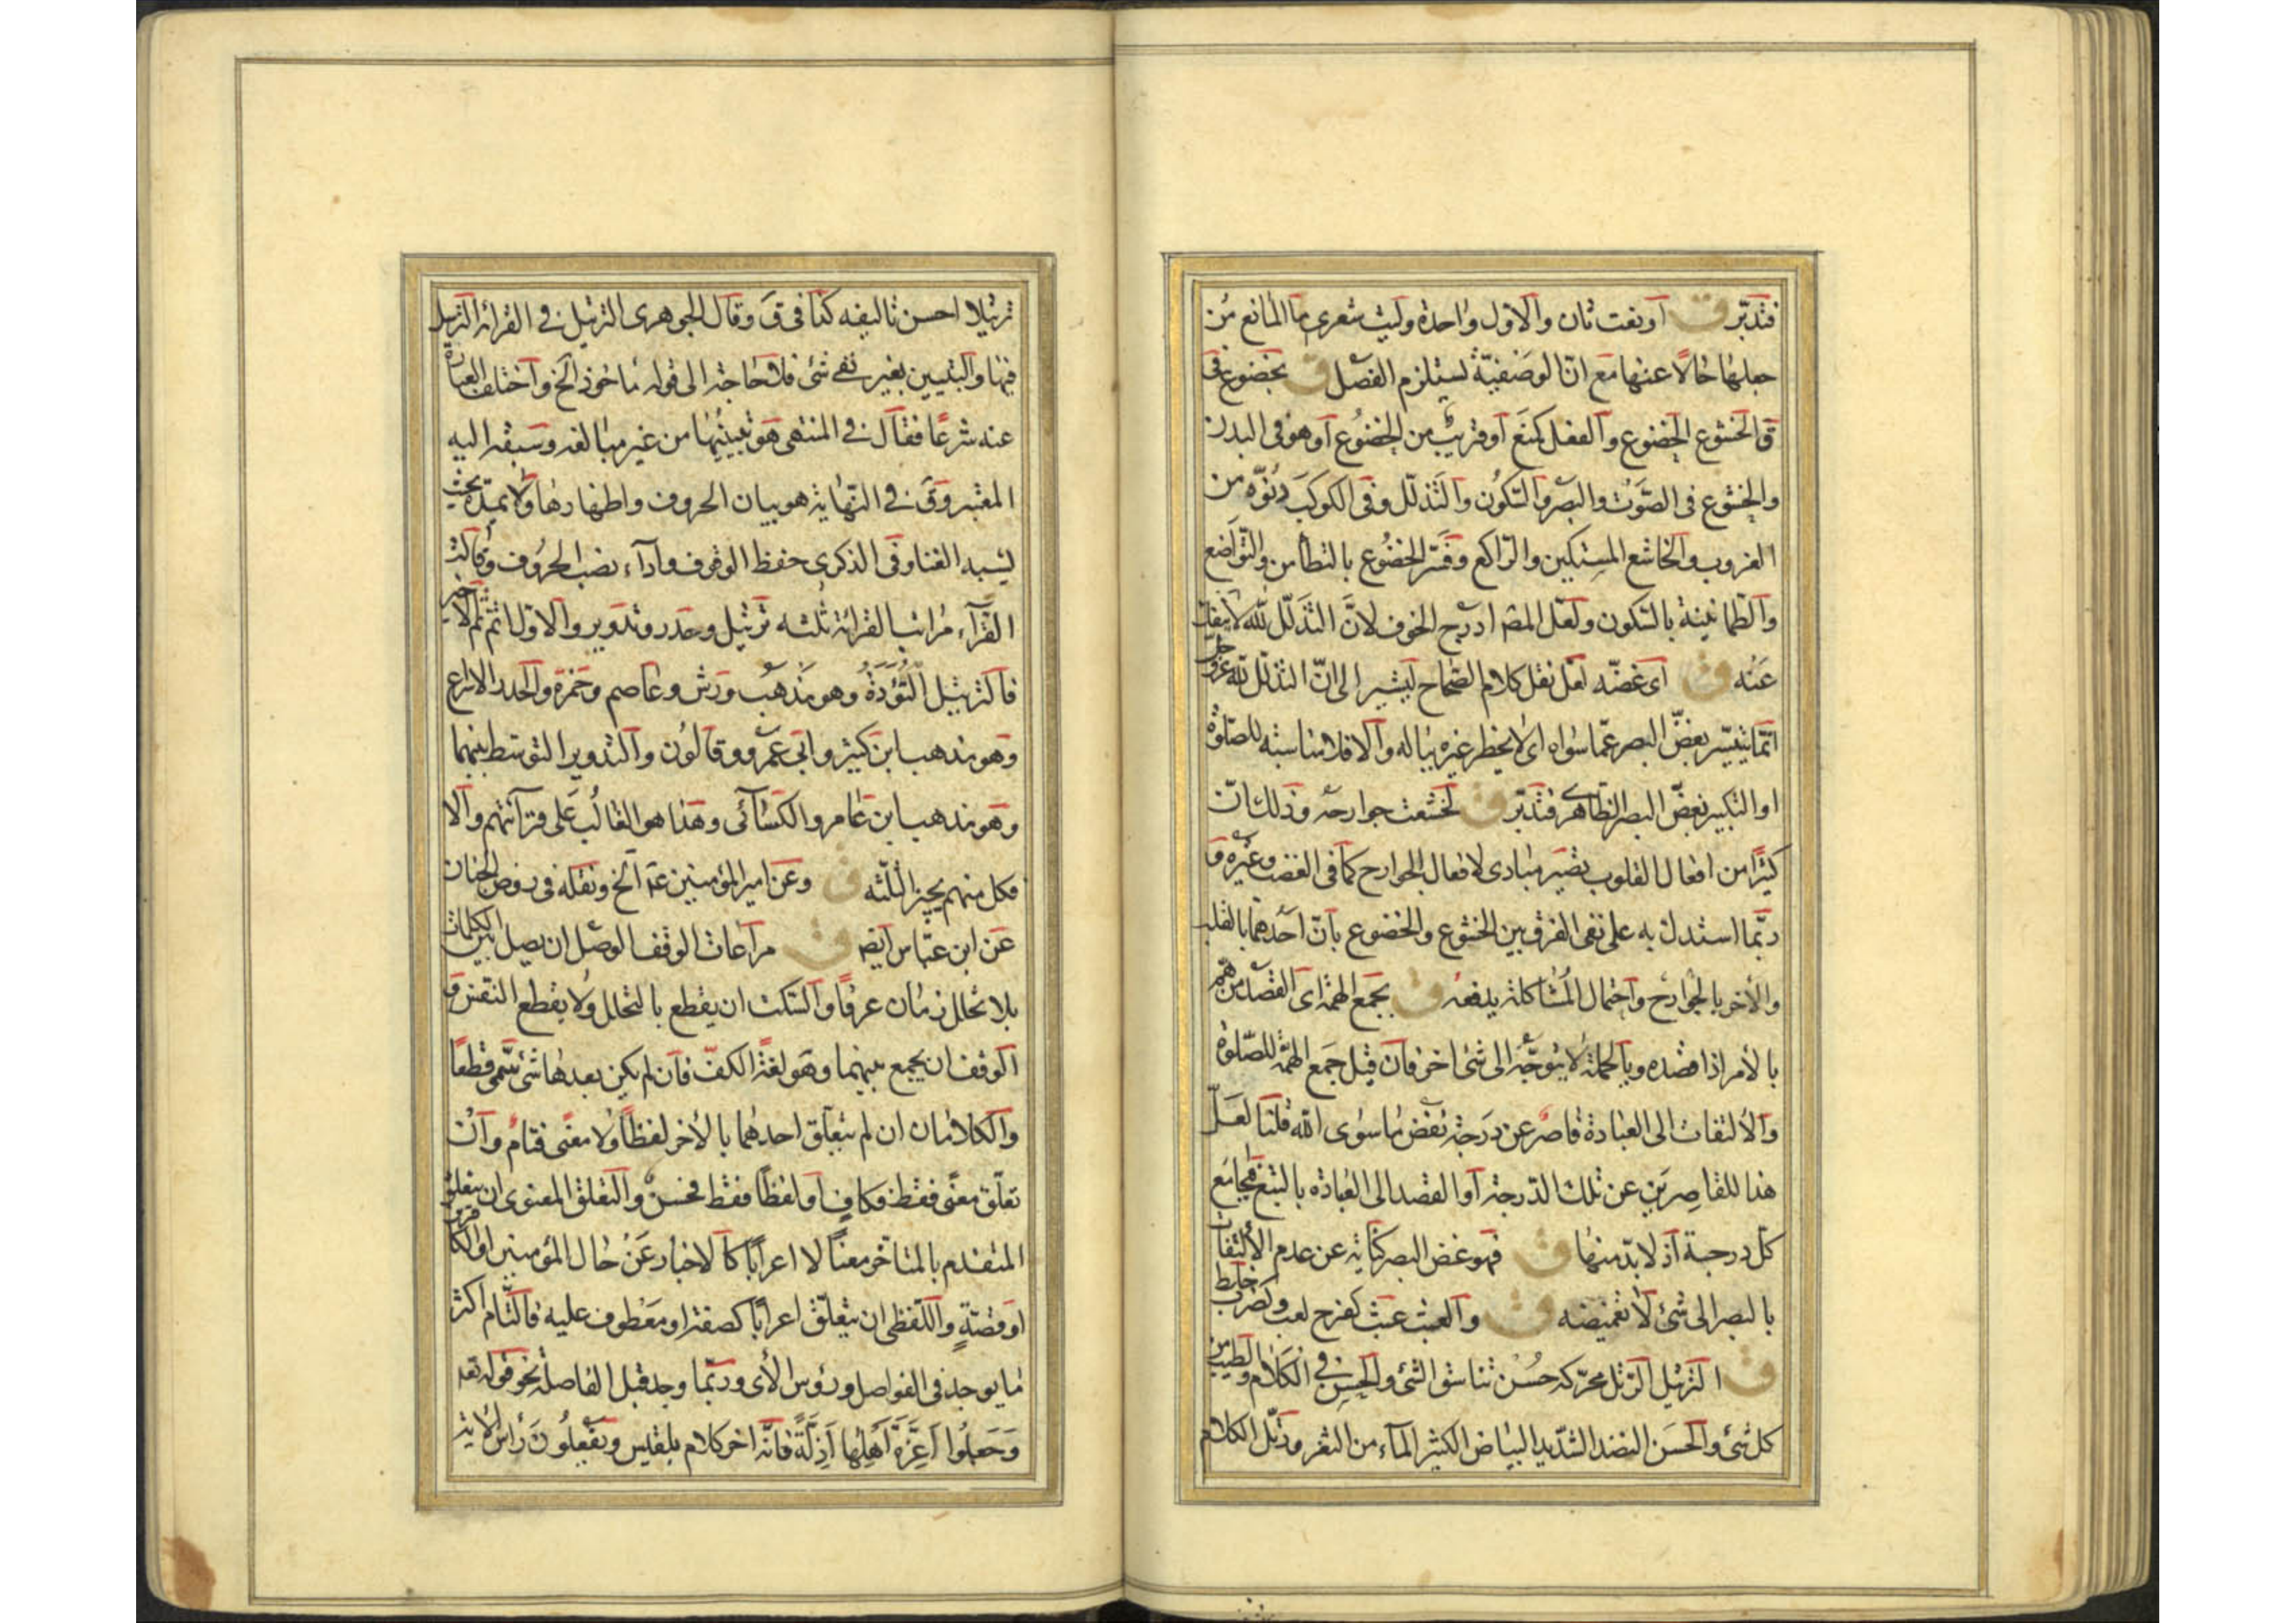 فتدبّر ق آو نعت ثان والاوّل واحدة وليت شعرى ما المانع من
جعلها حالا عنها مع انّ الوصفيّة ليستلزم الفصل ق بخضوع فى
ق الخشوع الخضوع والفعل كمنع آو قريب من الخضوع آو هو فى البدن
والخشوع فى الصّوت والبصر والسّكون والتّذلّل وفى الكوكب دنوّه من
الغروب والخاشع المستكين والرّاكع وفسّر الخضوع بالتطأمن والتّواضع
والطّمانينة بالسّكون ولعلّ المصـ ادرج الخوف لانّ التذلّل للّه لا ينفك
عنه ق اى غضّه لعلّ نقل كلام الصّحاح ليشير الى انّ التذلّل للّه عزّ وجلّ
انّما يتيسّر بغضّ البصر عمّا سواه اى لا يخطر غيره بباله والّا فلا مناسبة للصّلوة
او التكبير بغضّ البصر الظّاهرى فتدبّر ق لخشعت جوارحه وذلك لانّ
كثيرًا من افعال القلوب تصير مبادى لافعال الجوارح كما فى الغضب وغيره و
ربّما استدلّ به على نفى الفرق بين الخشوع والخضوع بانّ احدهما بالقلب
والاخر بالجوارح واحتمال المشاكلة يدفعه ق بجمع الهمّة اى القصد من همّ
بالأمر اذا قصده وبالجملة لا يتوجّه الى شئ اخر فان قيل جمع الهمّة للصّلوة
والألتفات الى العبادة قاصر عن درجة نفض ما سوى اللّه قلنا لعلّ
هذا للقاصرين عن تلك الدّرجة آو القصد الى العبادة بالتبع فيجامع
كلّ درجة اذ لا بدّ منها ق فهو غض البصر كناية عن عدم الألتفات
بالبصر الى شئ لا تغميضه ق والعبث عبث كفرح لعب وكضرب خلط
ق الترتيل الرّتل محرّكه حسن تناسق الشئ والحسن فى الكلام والطيب من
كل شئ والحسن النضد الشّديد البياض الكثير المآء من الثغر ورتّل الكلام
ترتيلا احسن تاليفه كذا فى ق وقال الجوهرى الترتيل فى القرائة الترسّل
فيها والتبيين بغير نغى شئ فلا حاجة الى قوله ماخوذ الخ واختلف العبارة
عنه شرعًا فقال فى المنتهى هو تبيينها من غير مبالغه وسبقه اليه
المعتبر وق فى النّهاية هو بيان الحروف واظهارها ولا يمدّه بحيث
ليشبه الغنا وفى الذكرى حفظ الوقوف وادآء الحروف وقالت
القرآء مراتب القرائة ثلثه ترتيل وحدر وتدوير والاوّل اتمّ ثمّ الاخير
فالترتيل التّؤدة وهو مذهب ورش وعاصم وحمزة والحدر الاسراع
وهو مذهب ابن كثير وابى عمرو وقالون والتدوير التوسّط بينهما
وهو مذهب ابن عامر والكسائى وهذا هو الغالب على قرآئتهم والّا
فكل منهم يجيز الثّلثه ق وعن امير المؤمنين عم الخ ونقله فى روض الجنان
عن ابن عبّاس ايضـ ق مراعات الوقف الوصل ان يصل بين الكلمات
بلا تخلل زمان عرفًا والسّكت ان يقطع بالتخلل ولا يقطع النفس و
الوقف ان يجمع بينهما وهو لغة الكفّ فان لم يكن بعدها شئ سمّى قطعًا
والكلامان ان لم يتعلّق احدهما بالأخر لفظًا ولا معنًى فتامّ وان
تعلّق معنًى فقط فكافٍ او لفظًا فقط فحسن والتعلق المعنوى ان يتعلق
المتقدم بالمتأخر معنًا لا اعرابًا كالاخبار عن حال المؤمنين او الكافرين
او قصّةٍ واللّفظى ان يتعلّق اعرابًا كصفة او معطوف عليه فالتّام اكثر
ما يوجد فى الفواصل ورؤس الأى وربّما وجد قبل الفاصلة نحو قوله تعـ
وَجَعَلُوا أَعِزَّةَ أَهْلِهَا أَذِلَّةً فانّه اخر كلام بلقيس ويَفعَلُونَ رأس الأية